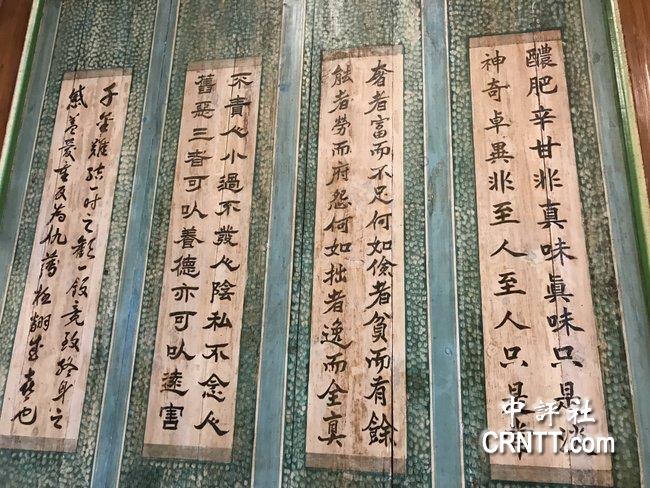 醲肥辛甘非真味眞味只是淡
神奇卓異非至人至人只是常
奢者富而不足何如儉者貧而有餘
能者勞而府怨何如拙者逸而全真
不責人小過不發人陰私不念人
舊惡三者可以養德亦可以遠害
千金難結一时之歡一飯竟致終身之
感盖愛重反為仇薄極翻成喜也
中評社
CRNTT.com